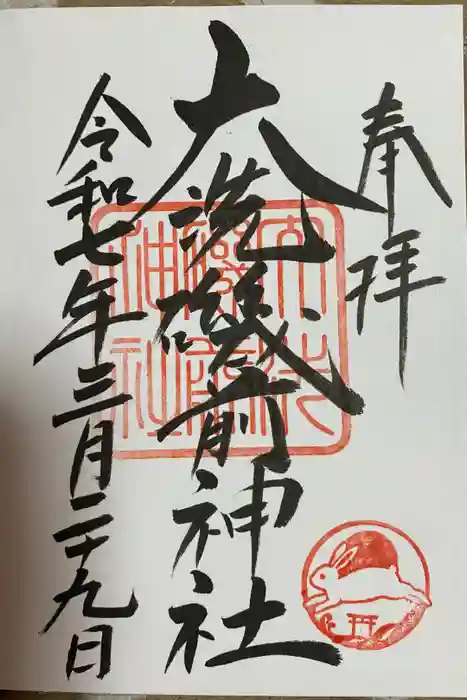 奉拝
大洗磯前神社
令和七年三月二十九日
大洗磯前神社